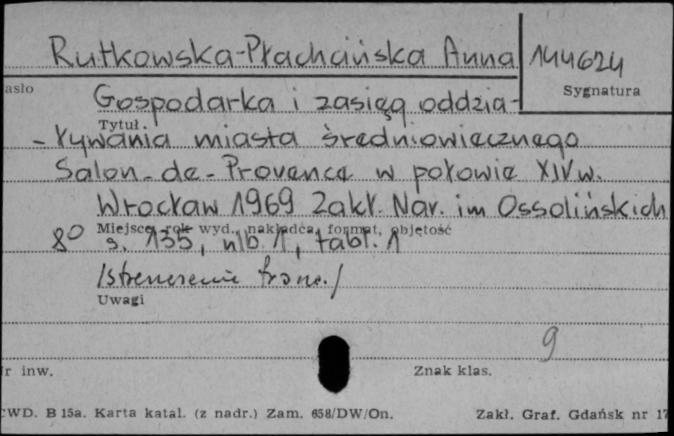 Rutkowska-Płachcińska Anna
144624
asło
Sygnatura
Gospodarka i zasięg oddzia-
Tytuł
- ływania miasta średniowiecznego
Salon-de-Provence w połowie XIV w.
Wrocław 1969 Zakł. Nar. im Ossolińskich
Miejsce, rok wyd., nakładca, format, objętość
8° s. 155, nlb. 1, tabl. 1
/Streszczenie franc./
Uwagi
9
r inw.
Znak klas.
CWD. B 15a. Karta katal. (z nadr.) Zam. 658/DW/On.
Zakł. Graf. Gdańsk nr 17